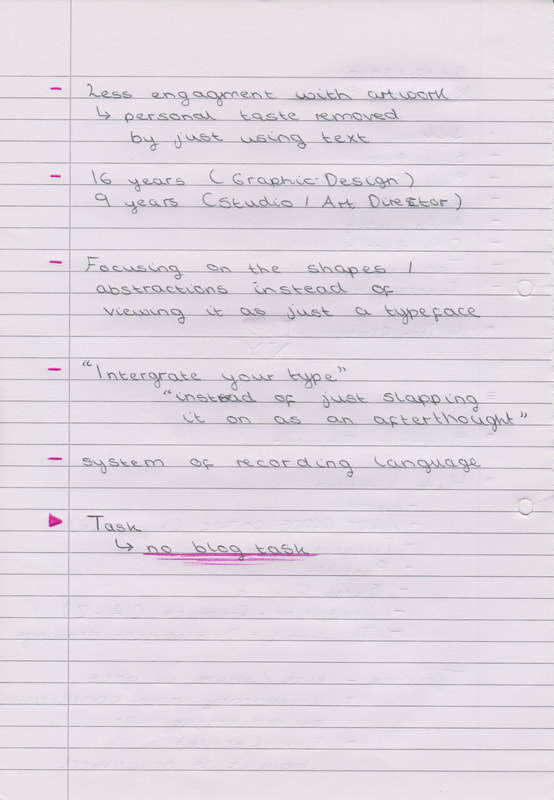 - Less engagment with artwork
↳ personal taste removed
by just using text
- 16 years (Graphic Design)
9 years (Studio / Art Director)
- Focusing on the shapes /
abstractions instead of
viewing it as just a typeface
- "Intergrate your type"
"instead of just slapping
it on as an afterthought"
- system of recording language
▶ Task
↳ no blog task